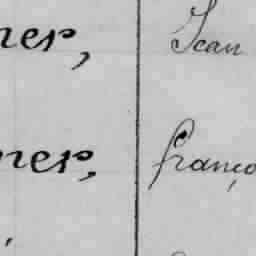 ner, Jean
ner, franço